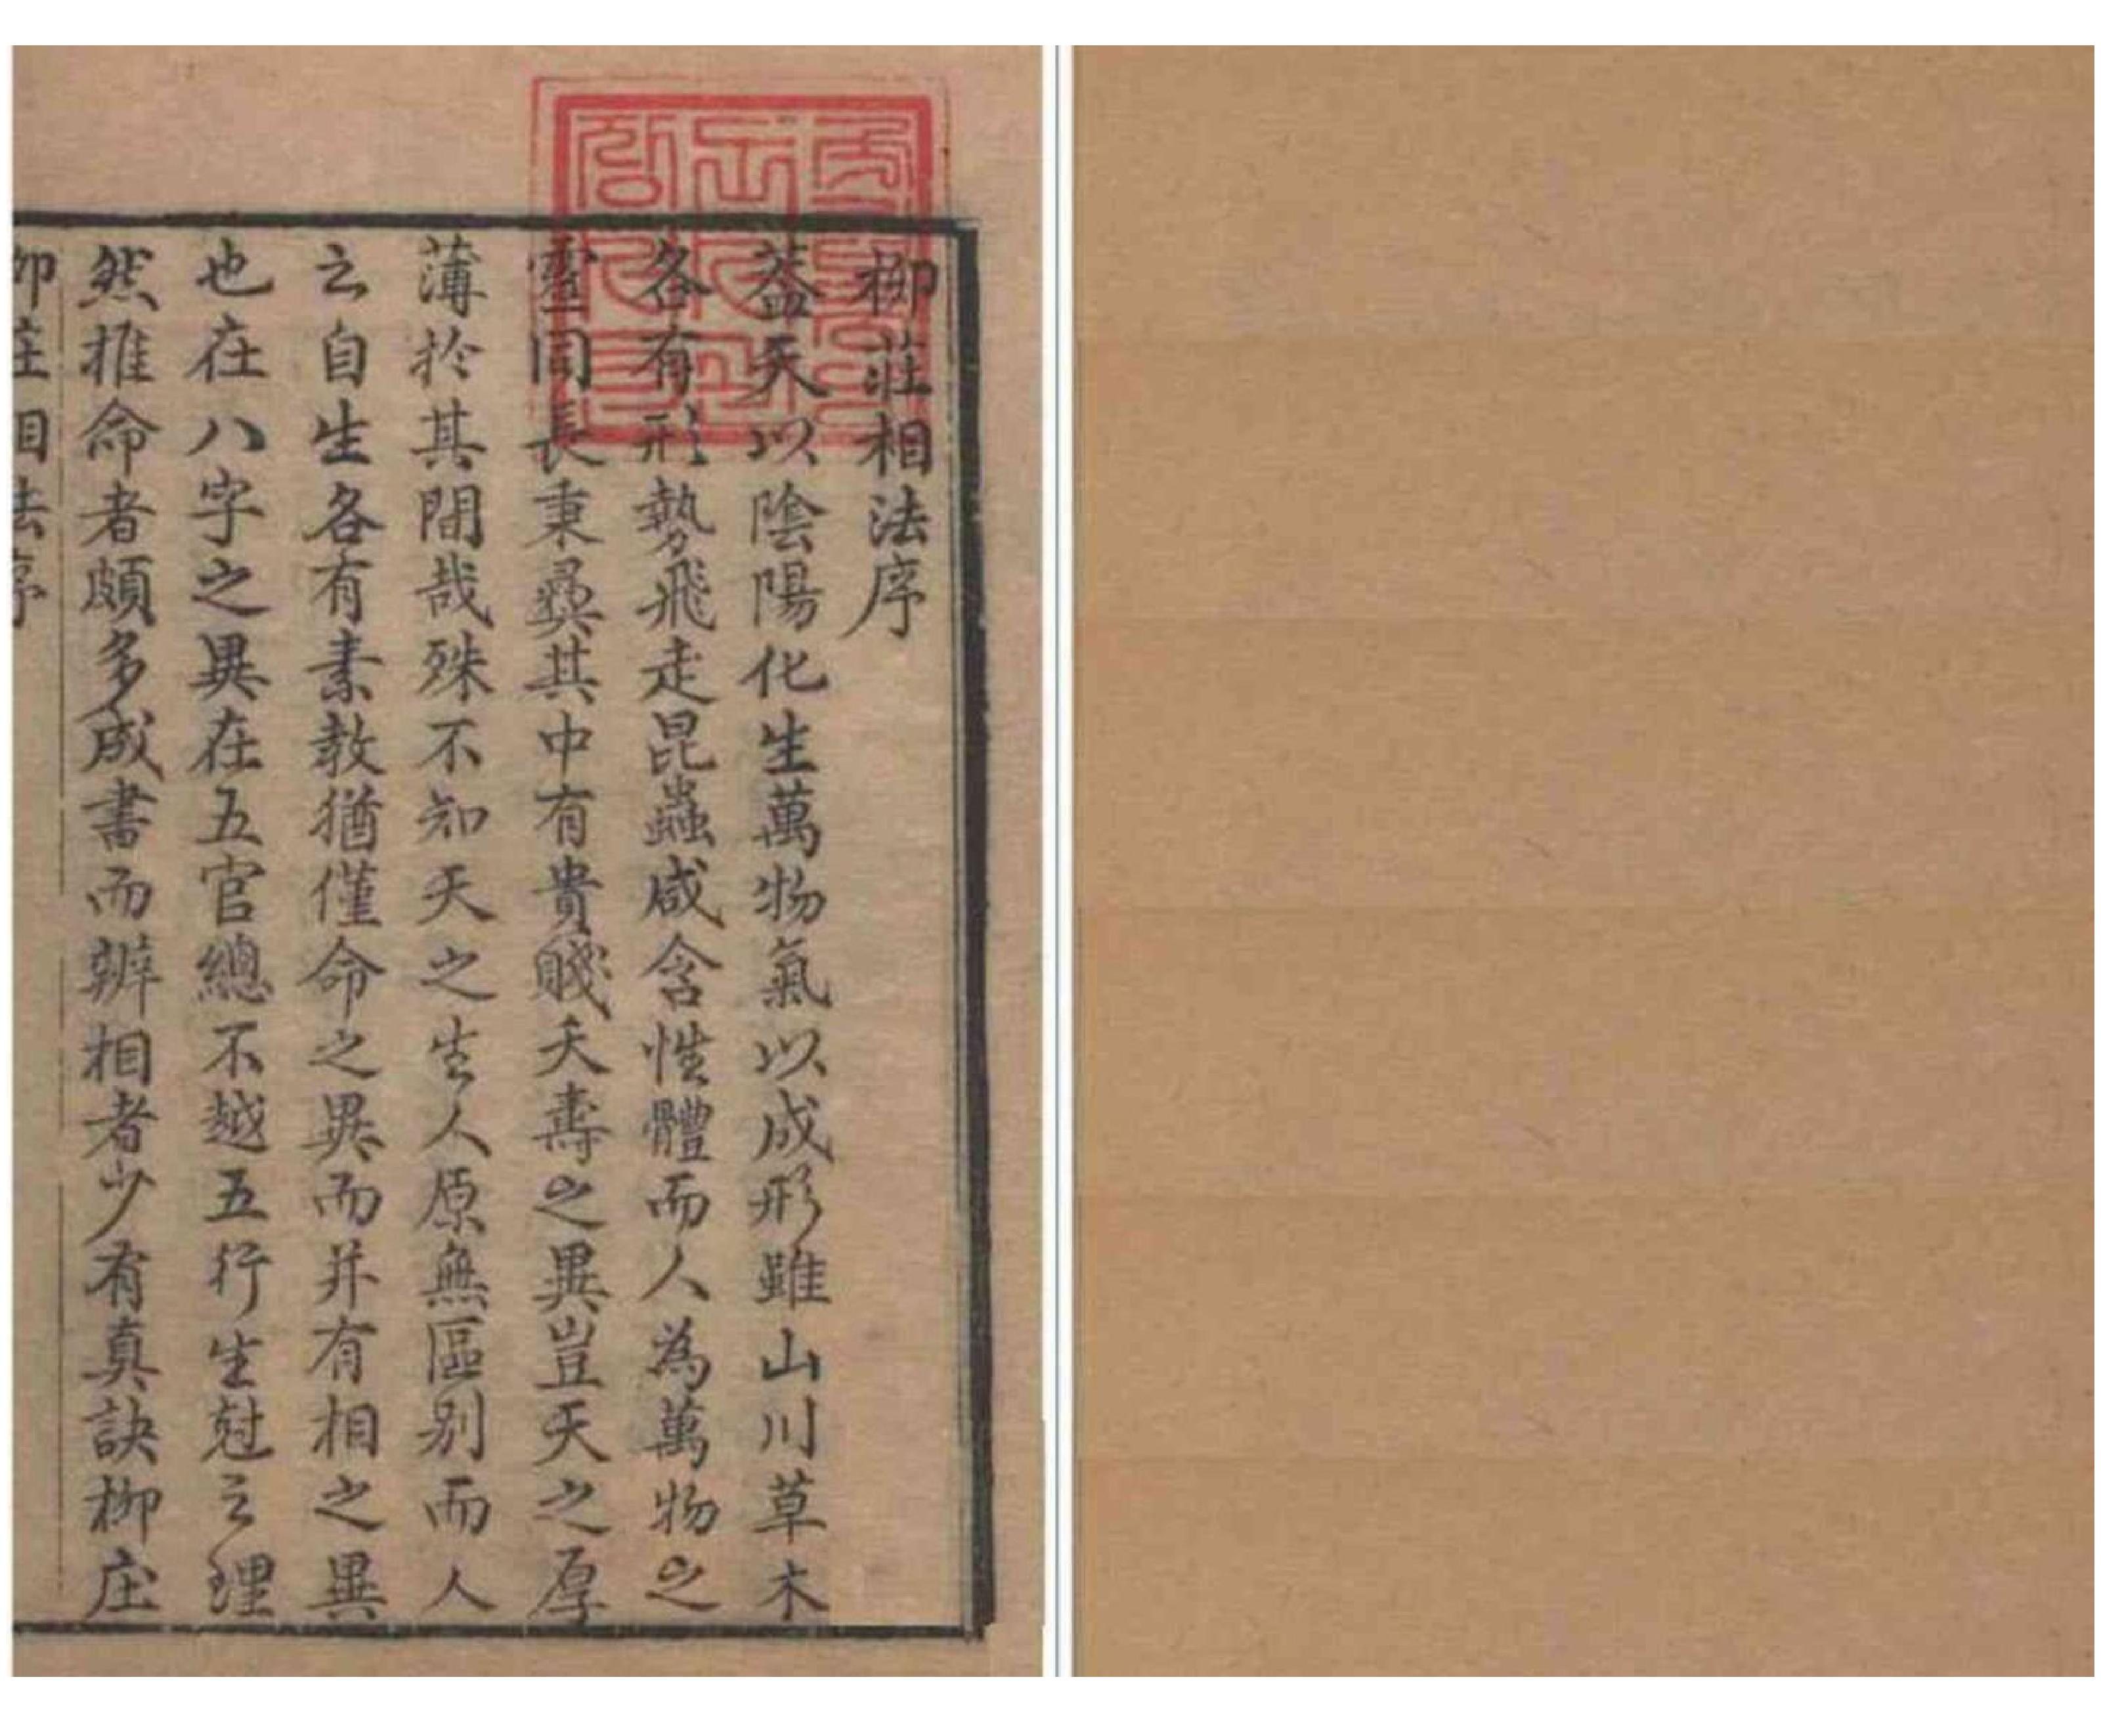 柳莊相法序
葢天以陰陽化生萬物氣以成形雖山川草木
各有形勢飛走昆蟲咸含性體而人為萬物之
靈同長秉彛其中有貴賤夭壽之異豈天之厚
薄扵其間哉殊不知天之生人原無區别而人
云自生各有素教猶僅命之異而并有相之異
也在八字之異在五官總不越五行生尅之理
然推命者頗多成書而辨相者少有真訣柳庄
柳庄相法序